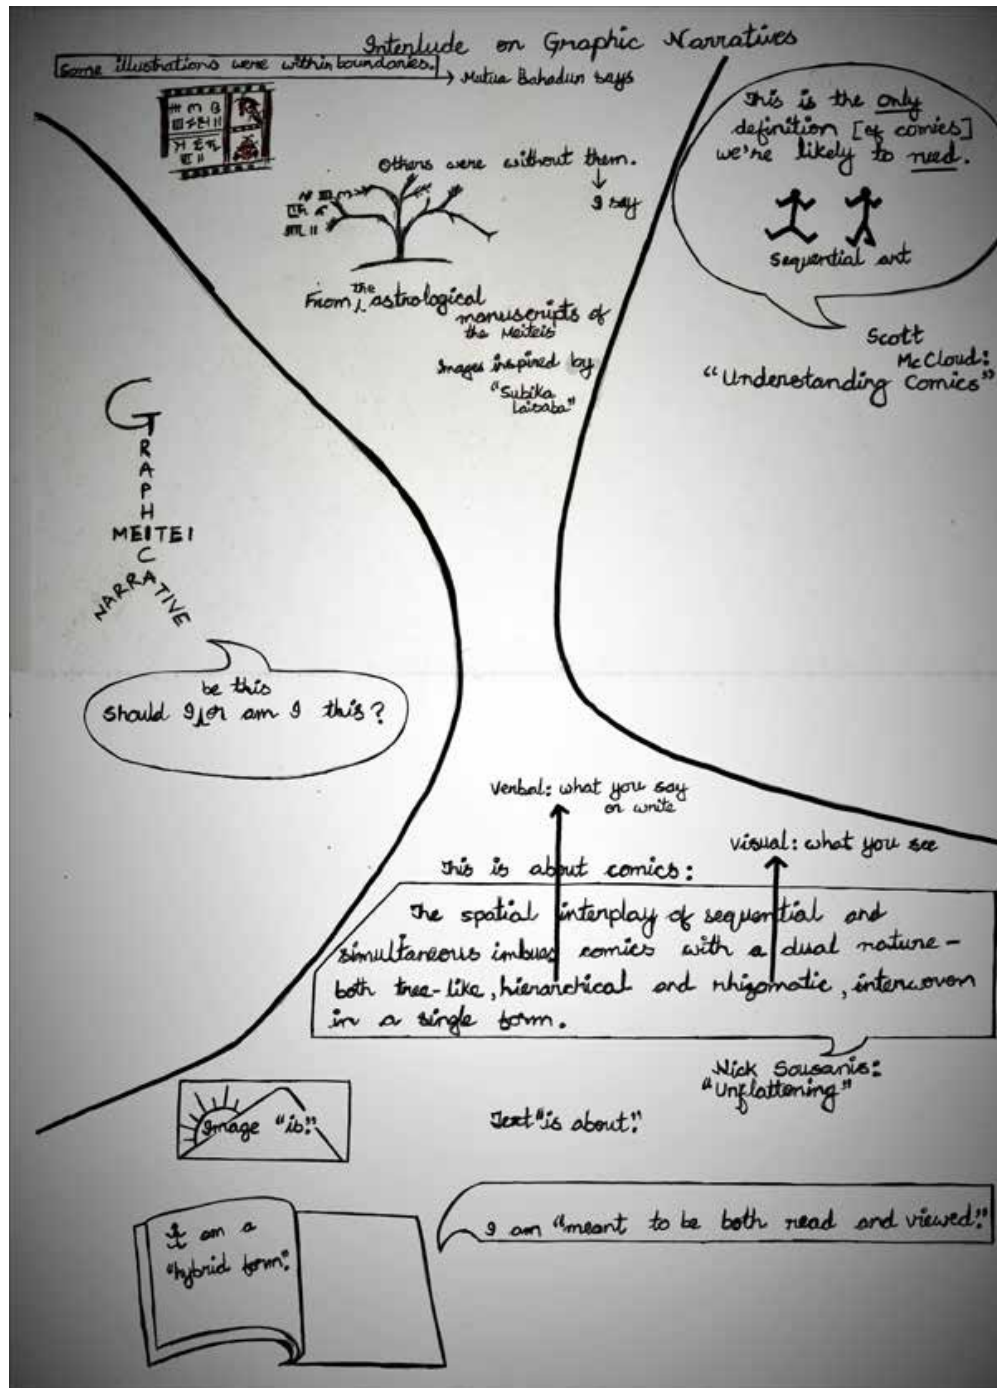 Interlude on Graphic Narratives
Some illustrations were within boundaries.
Mutua Bahadur says
Others were without them.
I say
From the astrological
manuscripts of
the Meiteis
Images inspired by
"Subika
Laisaba"
This is the only
definition [of comics]
we're likely to need.
Sequential art
Scott
McCloud:
"Understanding Comics"
GRAPHIC
MEITEI
NARRATIVE
be this
Should I or am I this?
Verbal: what you say
or write
Visual: what you see
This is about comics:
The spatial interplay of sequential and
simultaneous imbues comics with a dual nature-
both tree-like, hierarchical and rhizomatic, interwoven
in a single form.
Nick Sousanis:
"Unflattening"
Image "is."
Text "is about."
I am a
"hybrid form."
I am "meant to be both read and viewed."